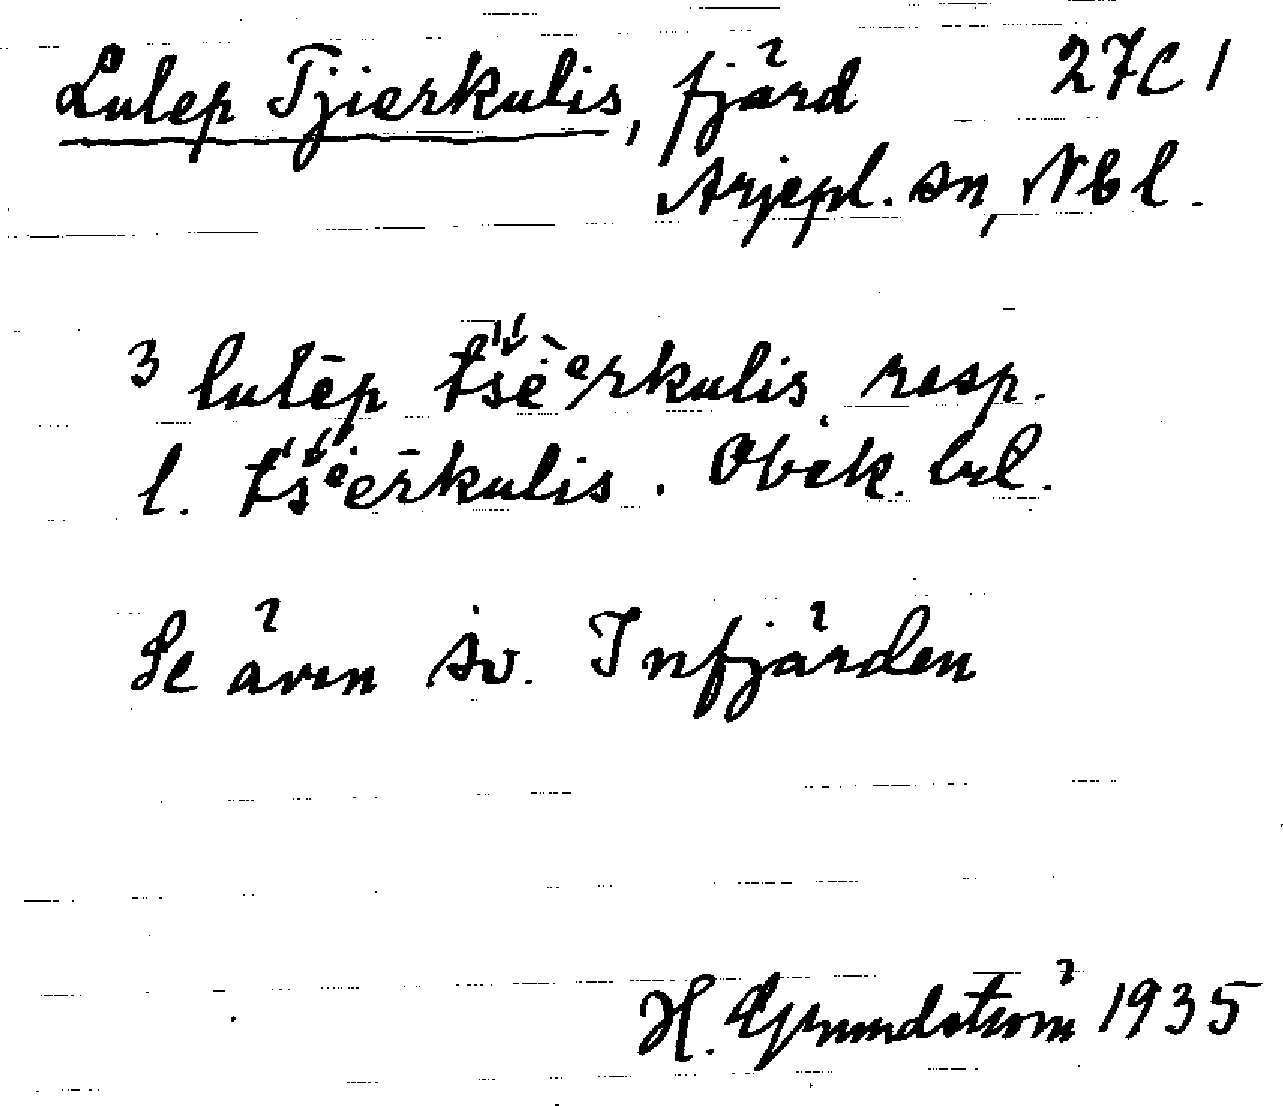 Lulep Tjierkulis, fjärd 27C 1
Arjepl. sn, Nbl.
3 lulēp tšė̀ᵉrkulis resp.
l. tšᵉ̇er̄kulis. Obek. bel.
Se även sv. Infjärden
H. Grundström 1935